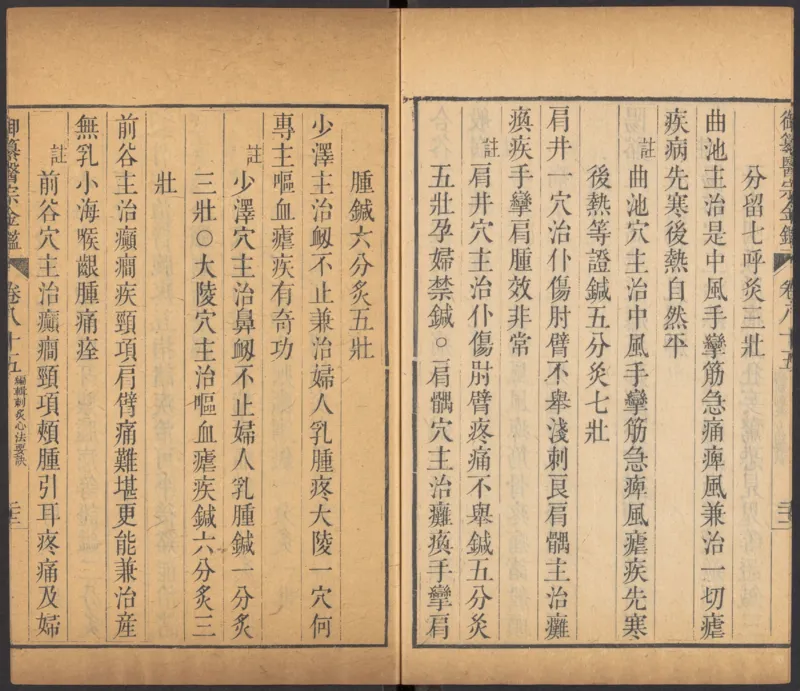 分留七呼炙三壯
曲池主治是中風手攣筋急痛痺風兼治一切瘧
疾病先寒後熱自然平
註曲池穴主治中風手攣筋急痺風瘧疾先寒
後熱等證鍼五分炙七壯
肩井一穴治仆傷肘臂不舉淺刺良肩髃主治癱
瘓疾手攣肩腫效非常
註肩井穴主治仆傷肘臂疼痛不舉鍼五分炙
五壯孕婦禁鍼○肩髃穴主治癱瘓手攣肩
御纂醫宗金鑑 卷八十五
腫鍼六分炙五壯
少澤主治衂不止兼治婦人乳腫疼大陵一穴何
專主嘔血瘧疾有奇功
註少澤穴主治鼻衂不止婦人乳腫鍼一分炙
三壯○大陵穴主治嘔血瘧疾鍼六分炙三
壯
前谷主治癲癇疾頸項肩臂痛難堪更能兼治産
無乳小海喉齦腫痛痊
註前谷穴主治癲癇頸項頰腫引耳疼痛及婦
御纂醫宗金鑑 卷八十五 編輯刺灸心法要訣